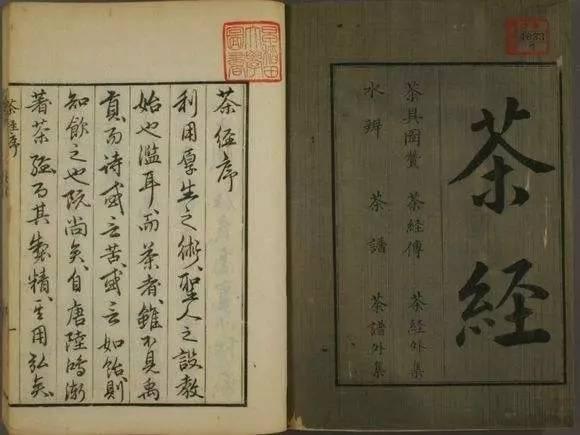 茶経
茶具圖賛 茶経傳 茶経外集
水辨 茶譜 茶譜外集
早稲田大學圖書
茶経序
利用厚生之術、聖人之設教
始也濫耳、而茶者、雖不見禹
貢、而詩或云苦、或云如飴、則
知飲之也既尚矣、自唐陸鴻漸
著茶経、而其製精、其用弘矣、
茶経序
一